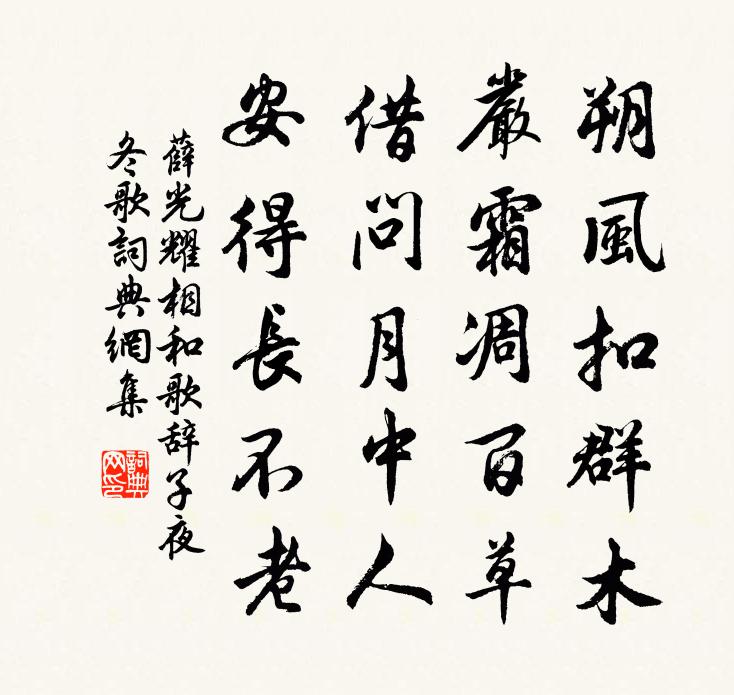 朔風扣群木
嚴霜凋百草
借問月中人
安得長不老
薛光耀相和歌辞子夜
冬歌詞典網集
詞典
网印